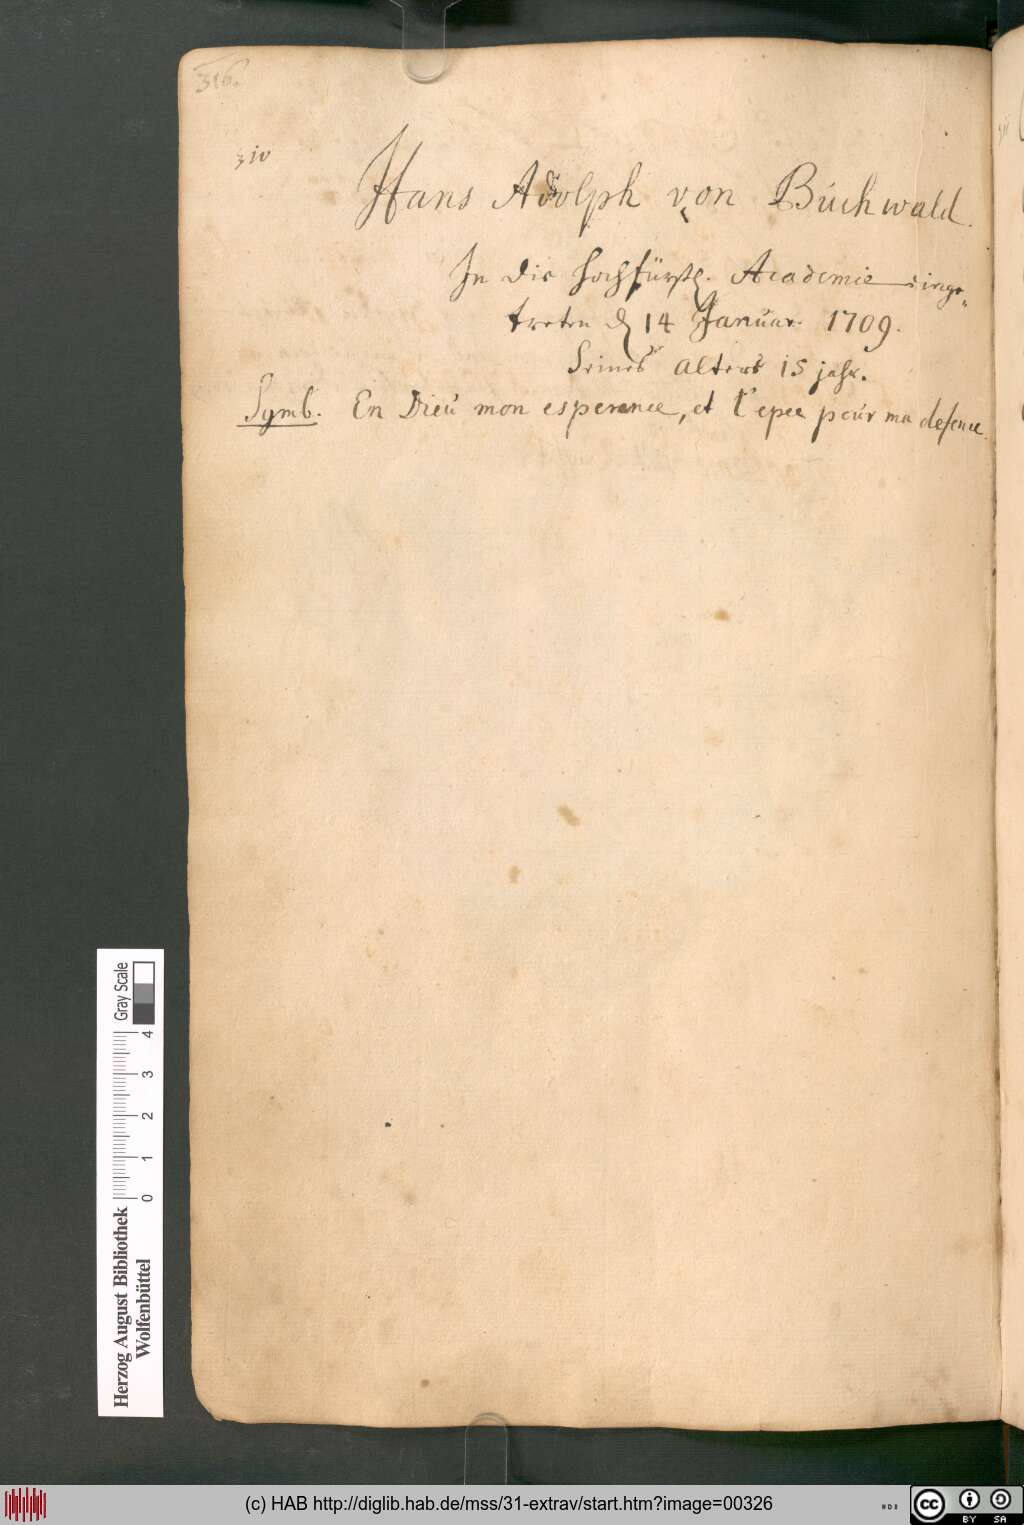 316.
310
Hans Adolph von Buchwald.
In die hochfürstl. Academie einge-
treten d 14 Januar. 1709.
Seines alters 15 jahr.
Symb. En Dieu mon esperance, et l'epee pour ma defence.
Gray Scale
0 1 2 3 4
Herzog August Bibliothek
Wolfenbüttel
(c) HAB http://diglib.hab.de/mss/31-extrav/start.htm?image=00326
cc BY SA